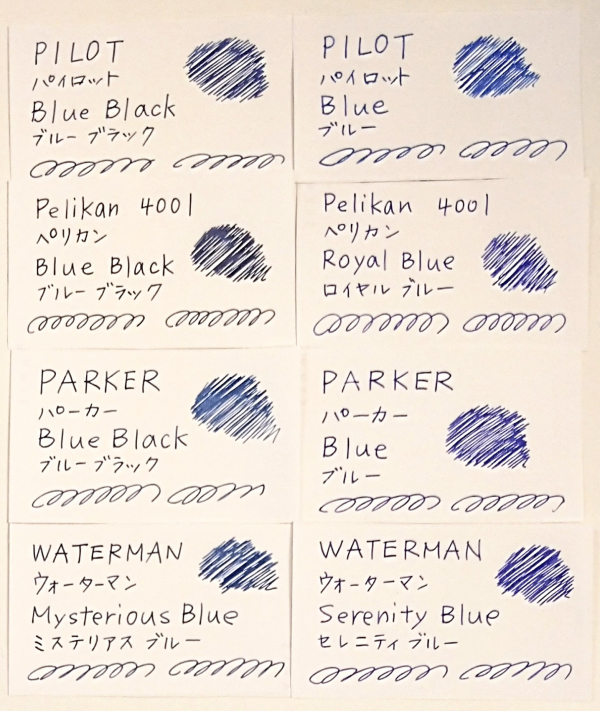 PILOT
パイロット
Blue Black
ブルー ブラック
PILOT
パイロット
Blue
ブルー
Pelikan 4001
ペリカン
Blue Black
ブルー ブラック
Pelikan 4001
ペリカン
Royal Blue
ロイヤル ブルー
PARKER
パーカー
Blue Black
ブルー ブラック
PARKER
パーカー
Blue
ブルー
WATERMAN
ウォーターマン
Mysterious Blue
ミステリアス ブルー
WATERMAN
ウォーターマン
Serenity Blue
セレニティ ブルー